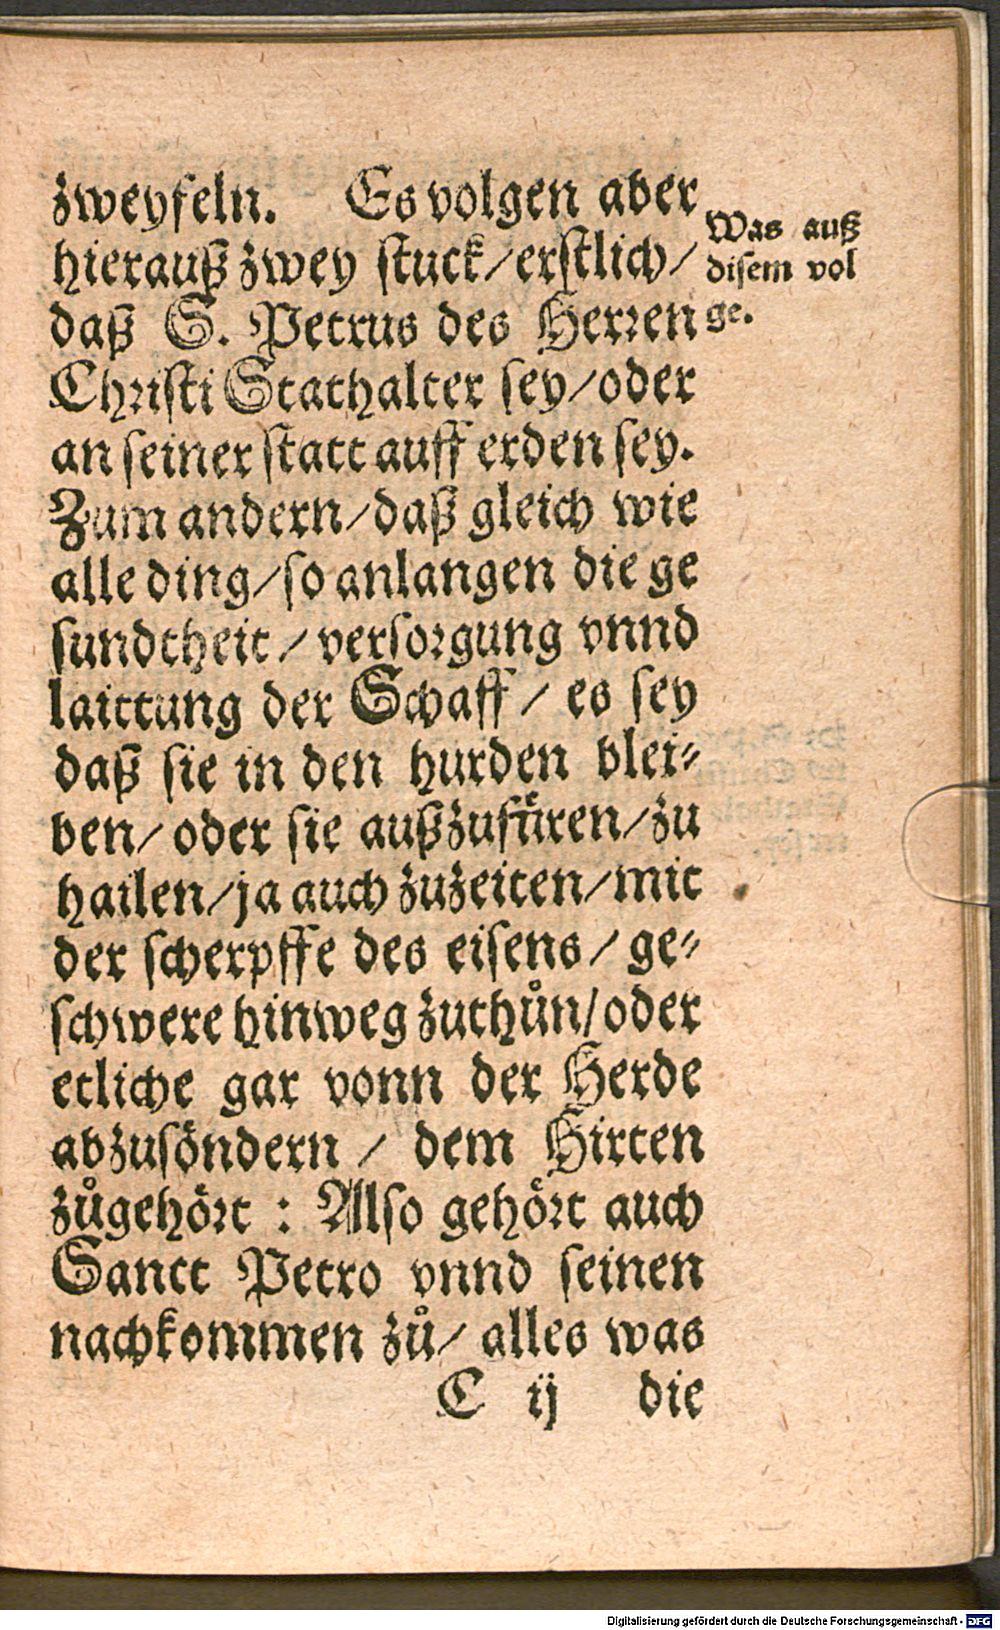 zweyfeln. Es volgen aber
hierauß zwey stuck/erstlich/
daß S. Petrus des Herren
Christi Stathalter sey/oder
an seiner statt auff erden sey.
Zum andern/daß gleich wie
alle ding/so anlangen die ge
sundtheit/versorgung vnnd
laittung der Schaff/ es sey
daß sie in den hurden blei-
ben/oder sie außzufüren/zu
hailen/ja auch zuzeiten/mit
der scherpffe des eisens/ge-
schwere hinweg zuthůn/oder
etliche gar vonn der Herde
abzusöndern/ dem Hirten
zůgehört : Also gehört auch
Sanct Petro vnnd seinen
nachkommen zů/ alles was
C ij die
Was auß
disem vol
ge.
Digitalisierung gefördert durch die Deutsche Forschungsgemeinschaft - DFG